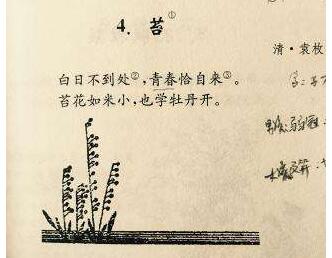 4. 苔①
清·袁枚
白日不到处②,青春恰自来③。
苔花如米小,也学牡丹开。